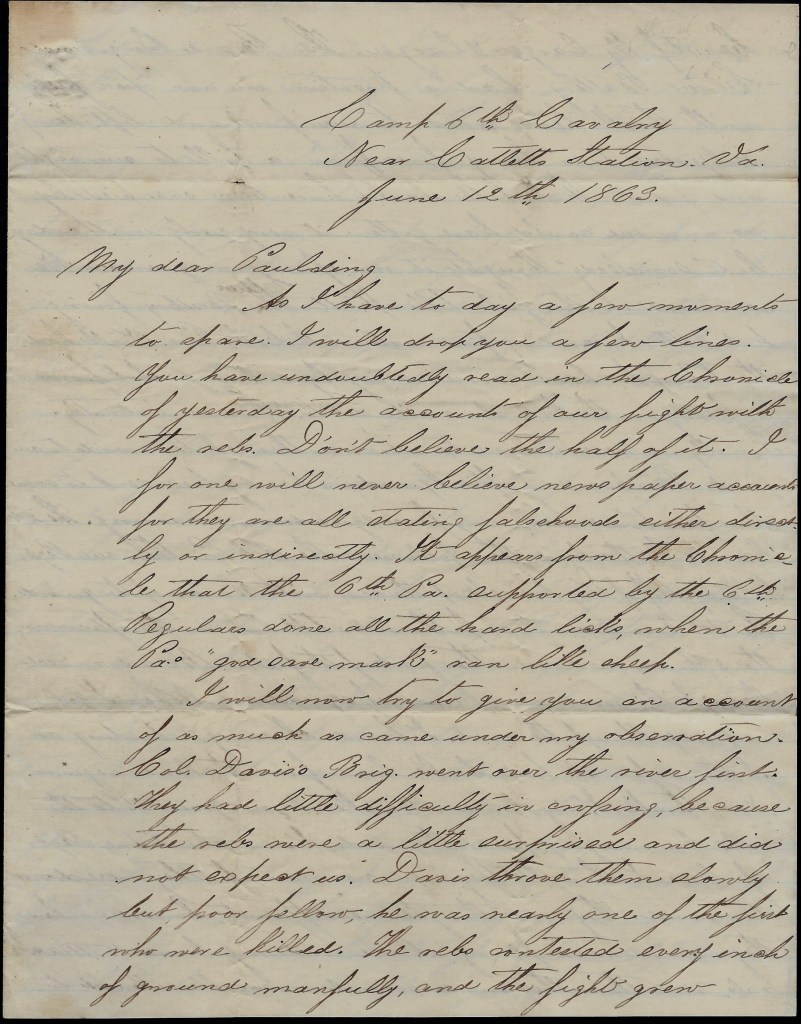 Camp 6th Cavalry
Near Catletts Station. Va.
June 12th 1863.
My dear Paulding
As I have to day a few moments
to spare. I will drop you a few lines.
You have undoubtedly read in the Chronicle
of yesterday the accounts of our fight with
the rebs. Don't believe the half of it. I
for one will never believe newspaper accounts
for they are all stating falsehoods either direct-
ly or indirectly. It appears from the Chronic-
le that the 6th Pa. supported by the 6th
Regulars done all the hard licks, when the
Pa.s "god save mark" ran like sheep.
I will now try to give you an account
of as much as came under my observation.
Col. Davis's Brig. went over the river first.
They had little difficulty in crossing, because
the rebs were a little surprised and did
not expect us. Davis throve them slowly
but, poor fellow, he was nearly one of the first
who were killed. The rebs contested every inch
of ground manfully, and the fight grew